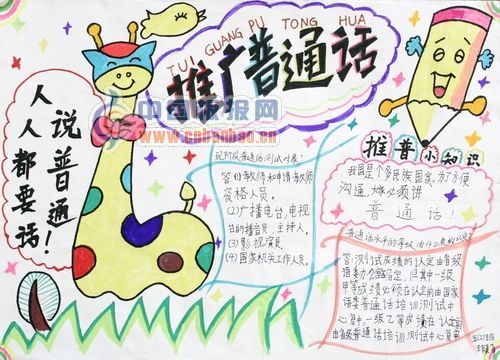 TUI GUANG PU TONG HUA
推广普通话
中国板报网
www.cnbanbao.cn
人人都要
说普通话!
现阶段普通话测试对象:
答(1)教师和申请教师
资格人员。
(2)广播电台,电视
台的播音员、主持人。
(3)影视演员。
(4)国家机关工作人员。
推普小知识
我国是个多民族国家,为了方便
沟通,嫁必须讲
普通话!
普通话水平的等级
答:测试成绩的认定由省级
甲等成绩必须在认定前由国家
语委普通话培训测试中
心复审,一级乙等成绩在认定前
由省级普通话培训测试中心复审